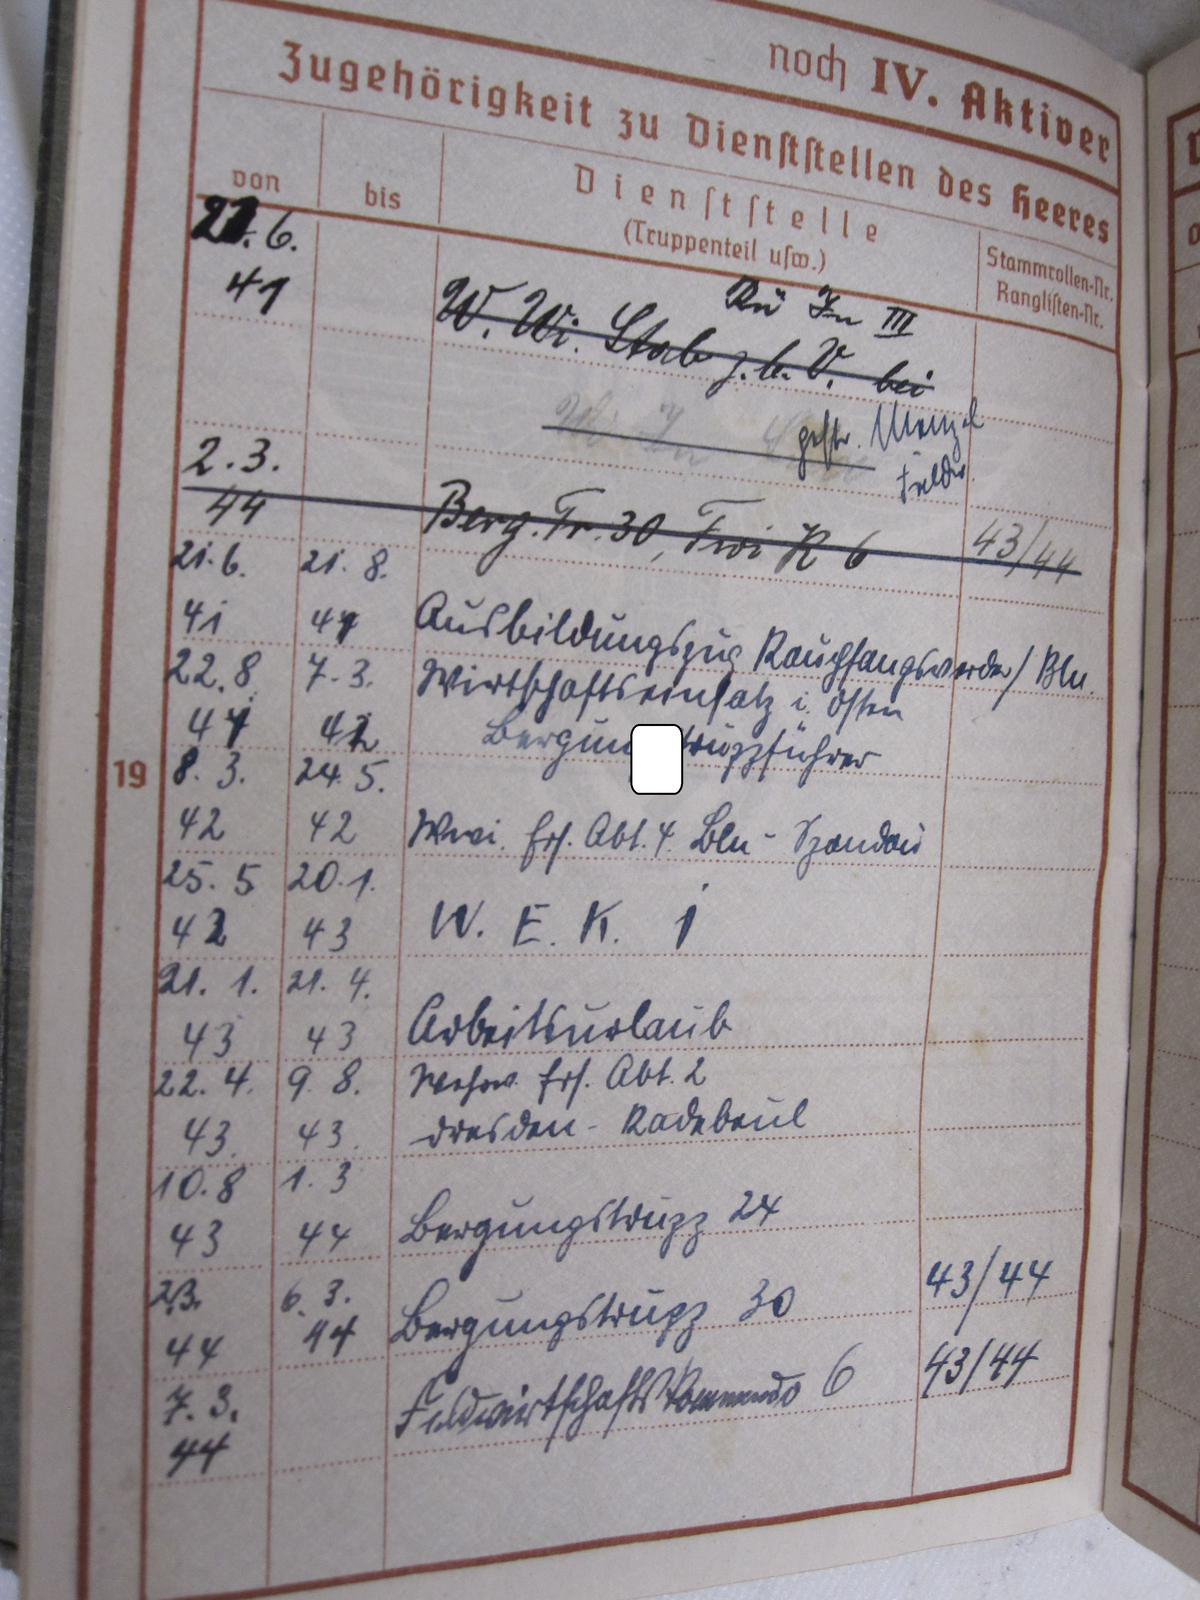 noch IV. Aktiver
Zugehörigkeit zu Dienststellen des Heeres
von bis Dienststelle
(Truppenteil usw.)
Stammrollen-Nr.
Ranglisten-Nr.
21. 6.
41
Rü In III
W. Wi. Stab z. b. V. bei
gestr. Menzel
Feldw.
2. 3.
44 Berg. Tr. 30, Fwi K 6 43/44
21. 6. 21. 8.
41 41 Ausbildungszug Rauchfangswerder / Bln.
22. 8. 7. 3. Wirtschaftseinsatz i. Osten
41 42 Bergun truppführer
19 8. 3. 24. 5.
42 42 Wwi. Ers. Abt. 4 Bln - Spandau
25. 5 20. 1.
42 43 W. E. K. 1
21. 1. 21. 4.
43 43 Arbeitsurlaub
22. 4. 9. 8. Wehrw. Ers. Abt. 2
43. 43. Dresden - Radebeul
10. 8 1. 3
43 44 Bergungstrupp 24
2.3. 6. 3.
44 44 Bergungstrupp 30 43/44
7. 3.
44 Feldwirtschaftskommando 6 43/44